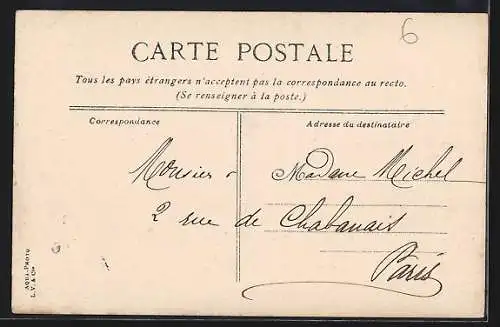 6
CARTE POSTALE
Tous les pays étrangers n'acceptent pas la correspondance au recto.
(Se renseigner à la poste.)
Correspondance
Adresse du destinataire
Monsier & Madame Michel
2 rue de Chabanais
Paris
AQUA-PHOTO
L.V. & Cie